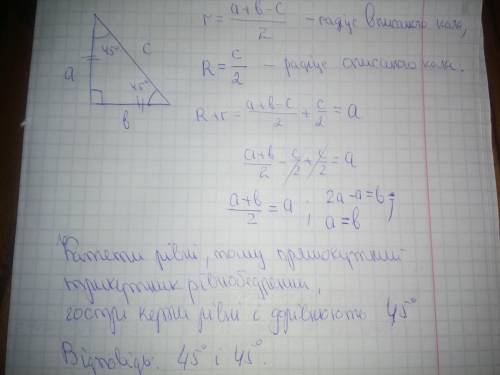 r = (a+b-c)/2 - радіус вписаного кола,
45° c
a
45°
b
R = c/2 - радіус описаного кола.
R+r = (a+b-c)/2 + c/2 = a
(a+b)/2 - c/2 + c/2 = a
(a+b)/2 = a ; 2a-a=b ;
a=b
Катети рівні, тому прямокутний
трикутник рівнобедрений,
гострі керти рівні і дорівнюють 45°
Відповідь: 45° і 45°.